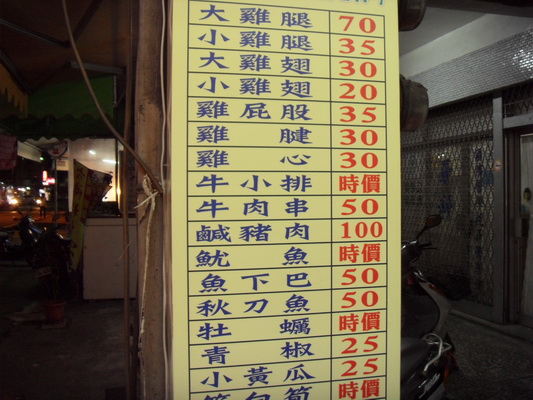 大雞腿 70
小雞腿 35
大雞翅 30
小雞翅 20
雞屁股 35
雞腱 30
雞心 30
牛小排 時價
牛肉串 50
鹹豬肉 100
魷魚 時價
魚下巴 50
秋刀魚 50
牡蠣 時價
青椒 25
小黃瓜 25
時價